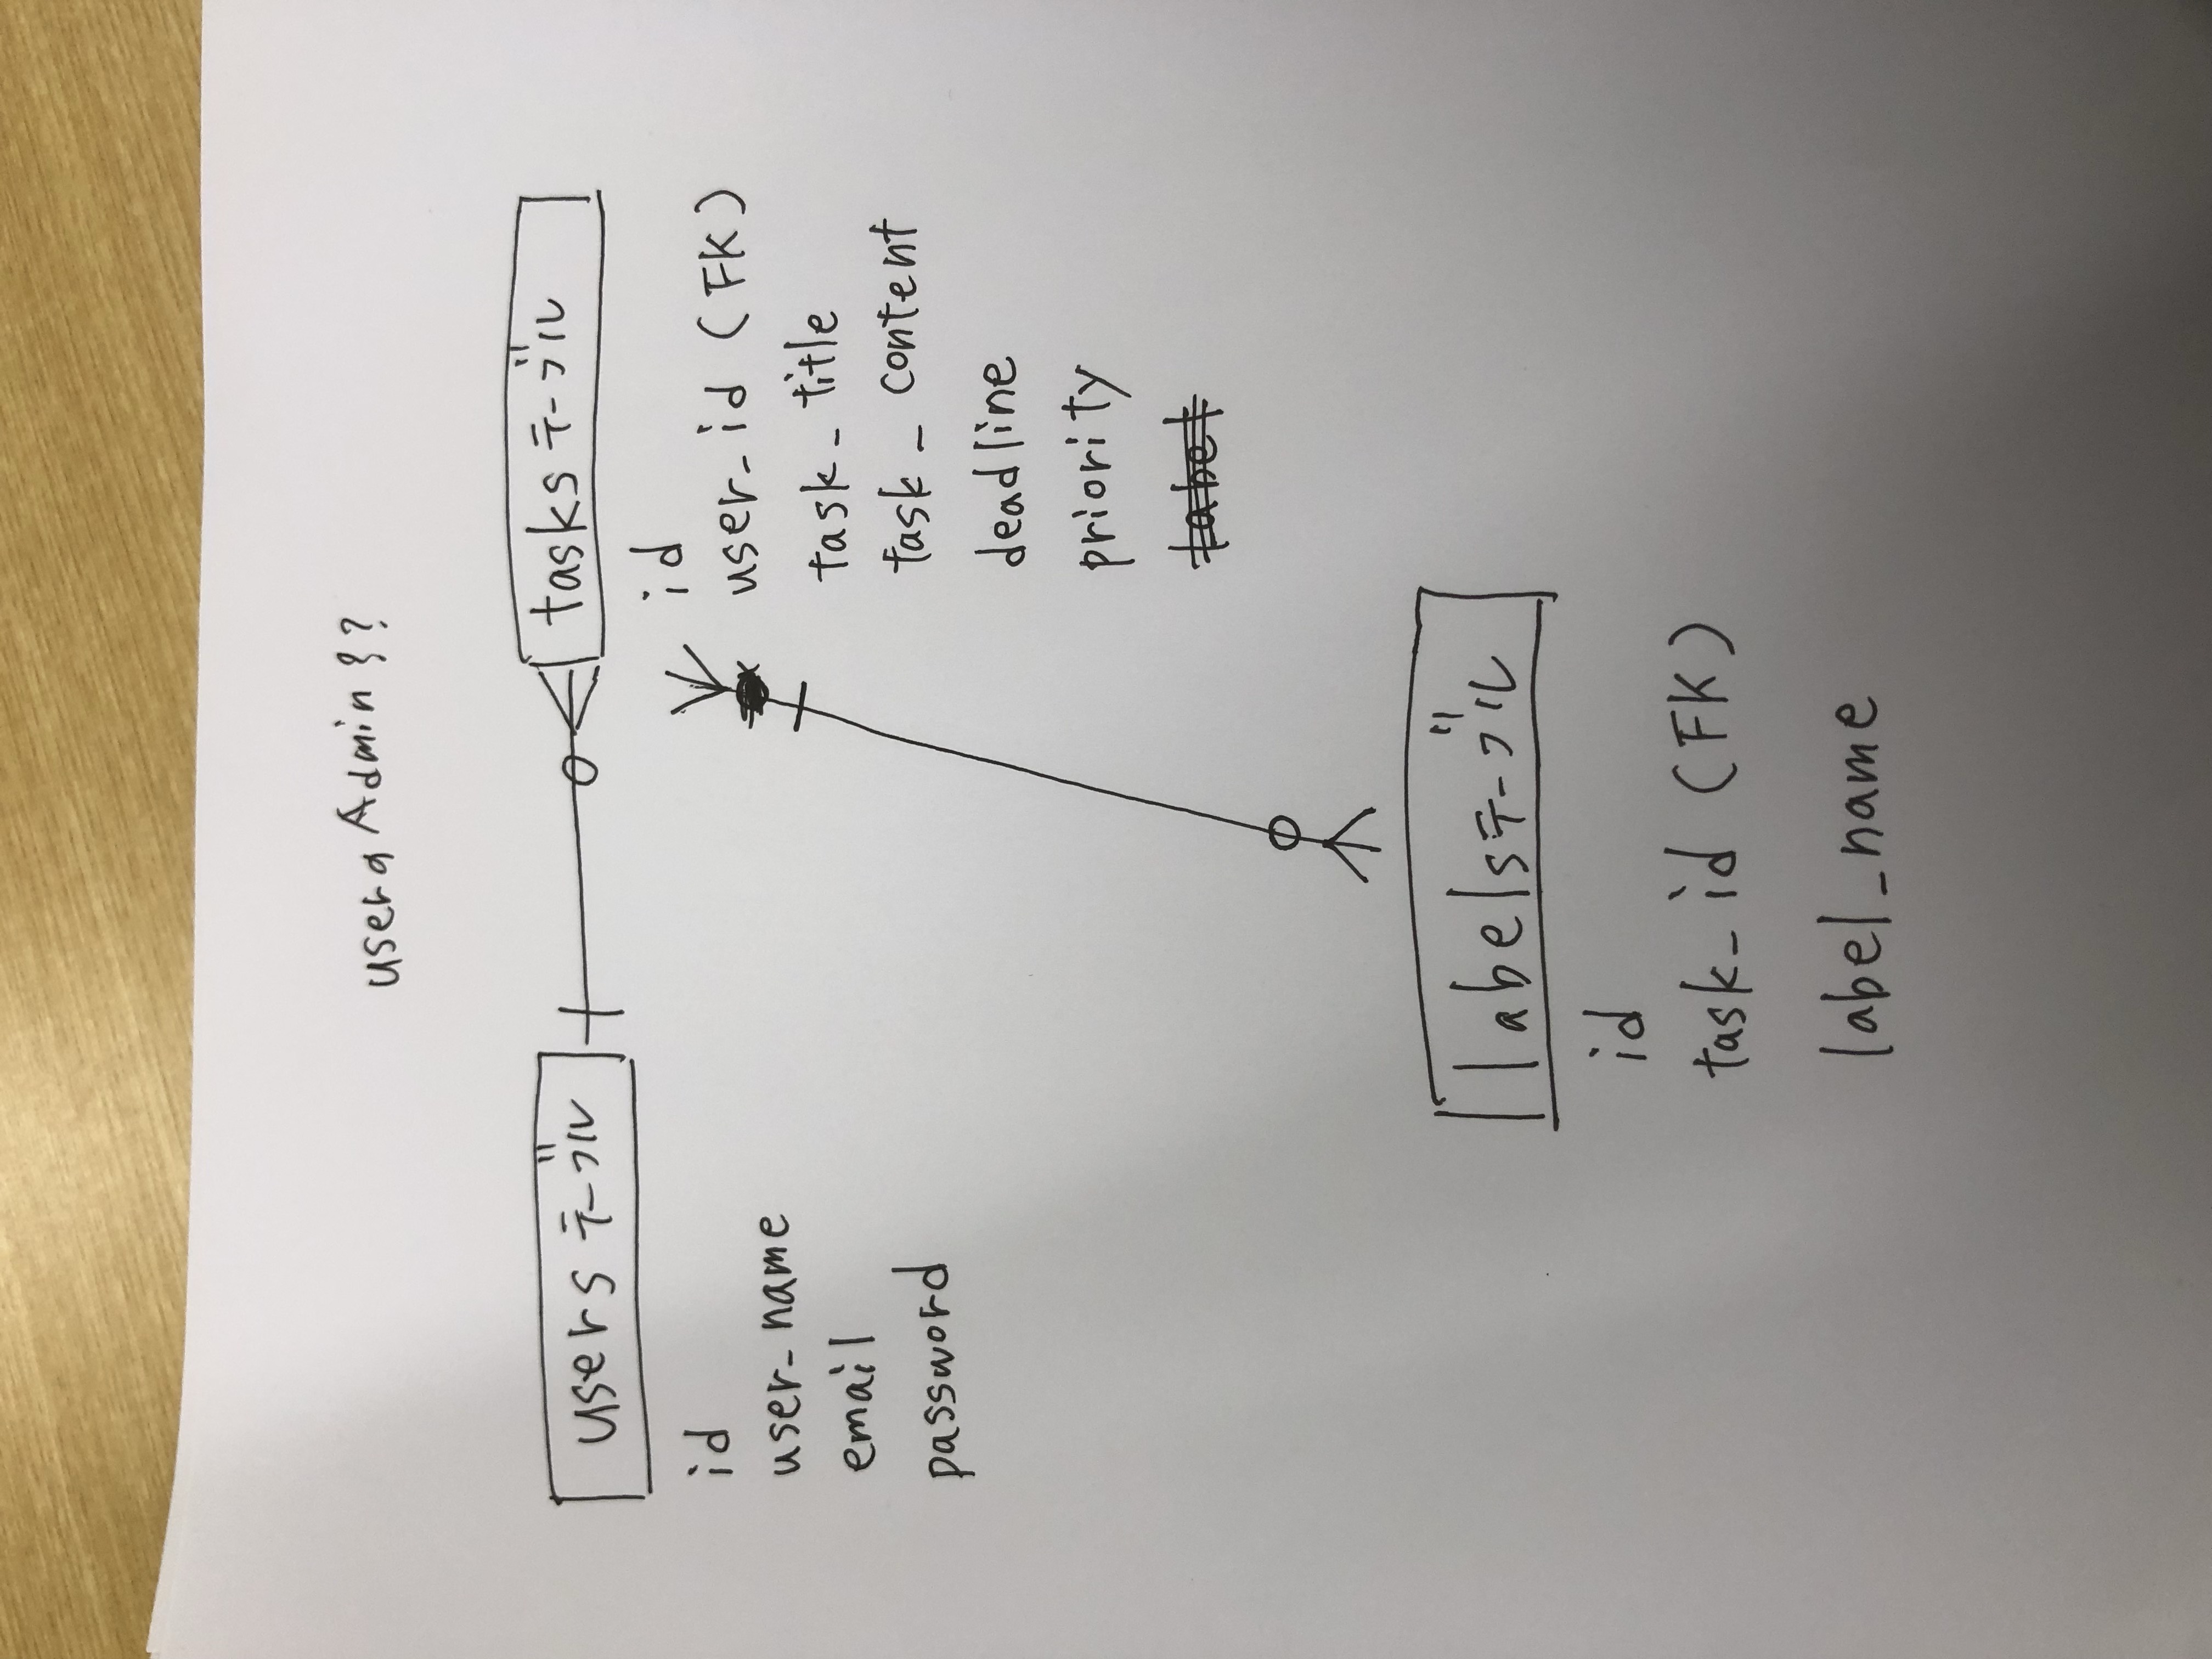 userのAdminは?
usersテーブル
id
user_name
email
password
tasksテーブル
id
user_id (FK)
task_title
task_content
deadline
priority
label
labelsテーブル
id
task_id (FK)
label_name